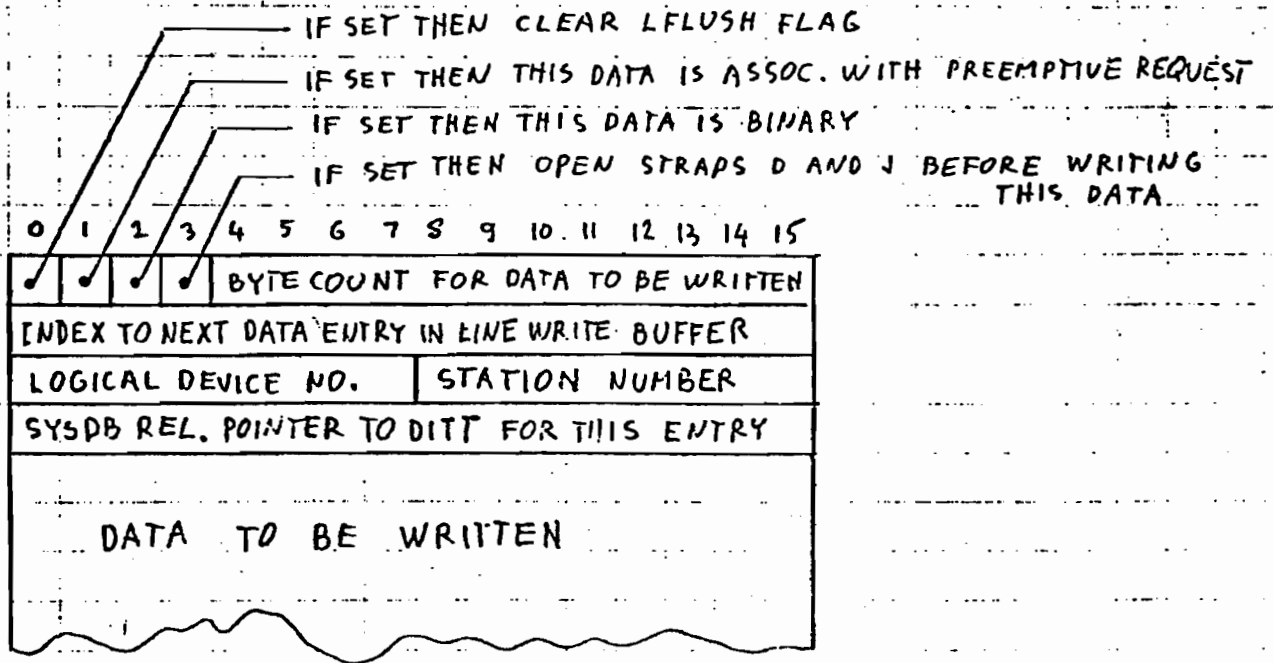 IF SET THEN CLEAR LFLUSH FLAG
IF SET THEN THIS DATA IS ASSOC. WITH PREEMPTIVE REQUEST
IF SET THEN THIS DATA IS BINARY
IF SET THEN OPEN STRAPS D AND J BEFORE WRITING
THIS DATA
0 1 2 3 4 5 6 7 8 9 10 11 12 13 14 15
BYTE COUNT FOR DATA TO BE WRITTEN
INDEX TO NEXT DATA ENTRY IN LINE WRITE BUFFER
LOGICAL DEVICE NO. STATION NUMBER
SYSDB REL. POINTER TO DITT FOR THIS ENTRY
DATA TO BE WRITTEN